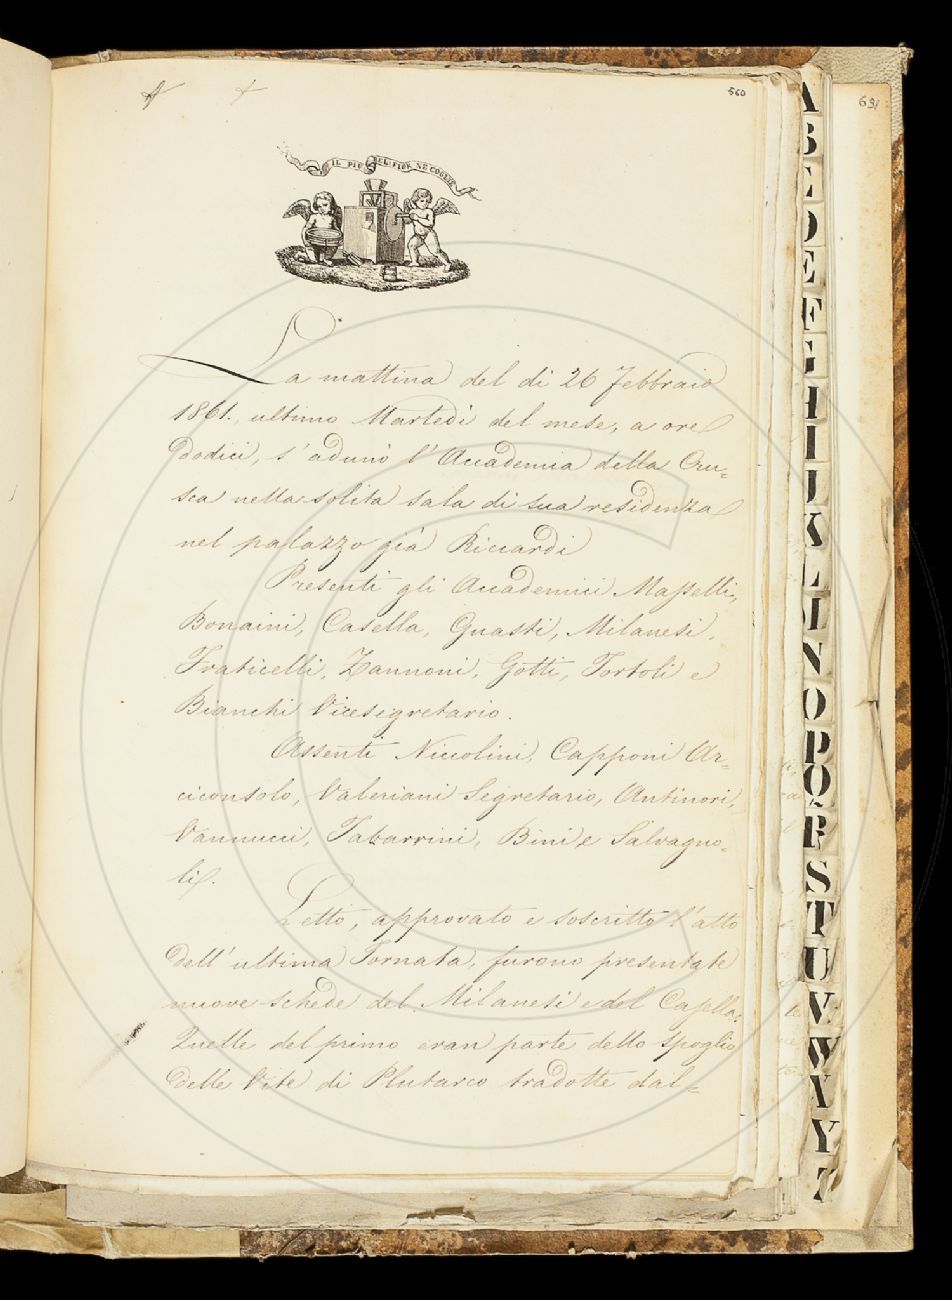 560
691
IL PIÙ BEL FIOR NE COGLIE
La mattina del di 26 Febbraio
1861., ultimo Martedì del mese, a ore
dodici, s'adunò l'Accademia della Cru=
sca nella solita sala di sua residenza
nel palazzo già Riccardi
Presenti gli Accademici Masselli,
Bonaini, Casella, Guasti, Milanesi,
Fraticelli, Zannoni, Gotti, Tortoli e
Bianchi Vicesegretario.
Assenti Niccolini, Capponi Ar=
ciconsolo, Valeriani Segretario, Antinori,
Vannucci, Tabarrini, Bini, e Salvagno=
li.
Letto, approvato e soscritto l'atto
dell'ultima Tornata, furono presentate
nuove schede del Milanesi e del Casella.
Quelle del primo eran parte dello spoglio
delle Vite di Plutarco tradotte dal=
A
B
E
D
E
F
G
H
I
J
K
L
M
N
O
P
Q
R
S
T
U
V
W
X
Y
Z